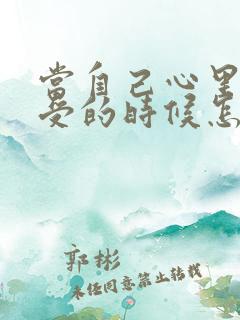 當自己心里
受的時候怎
郭彬
未经同意禁止转载